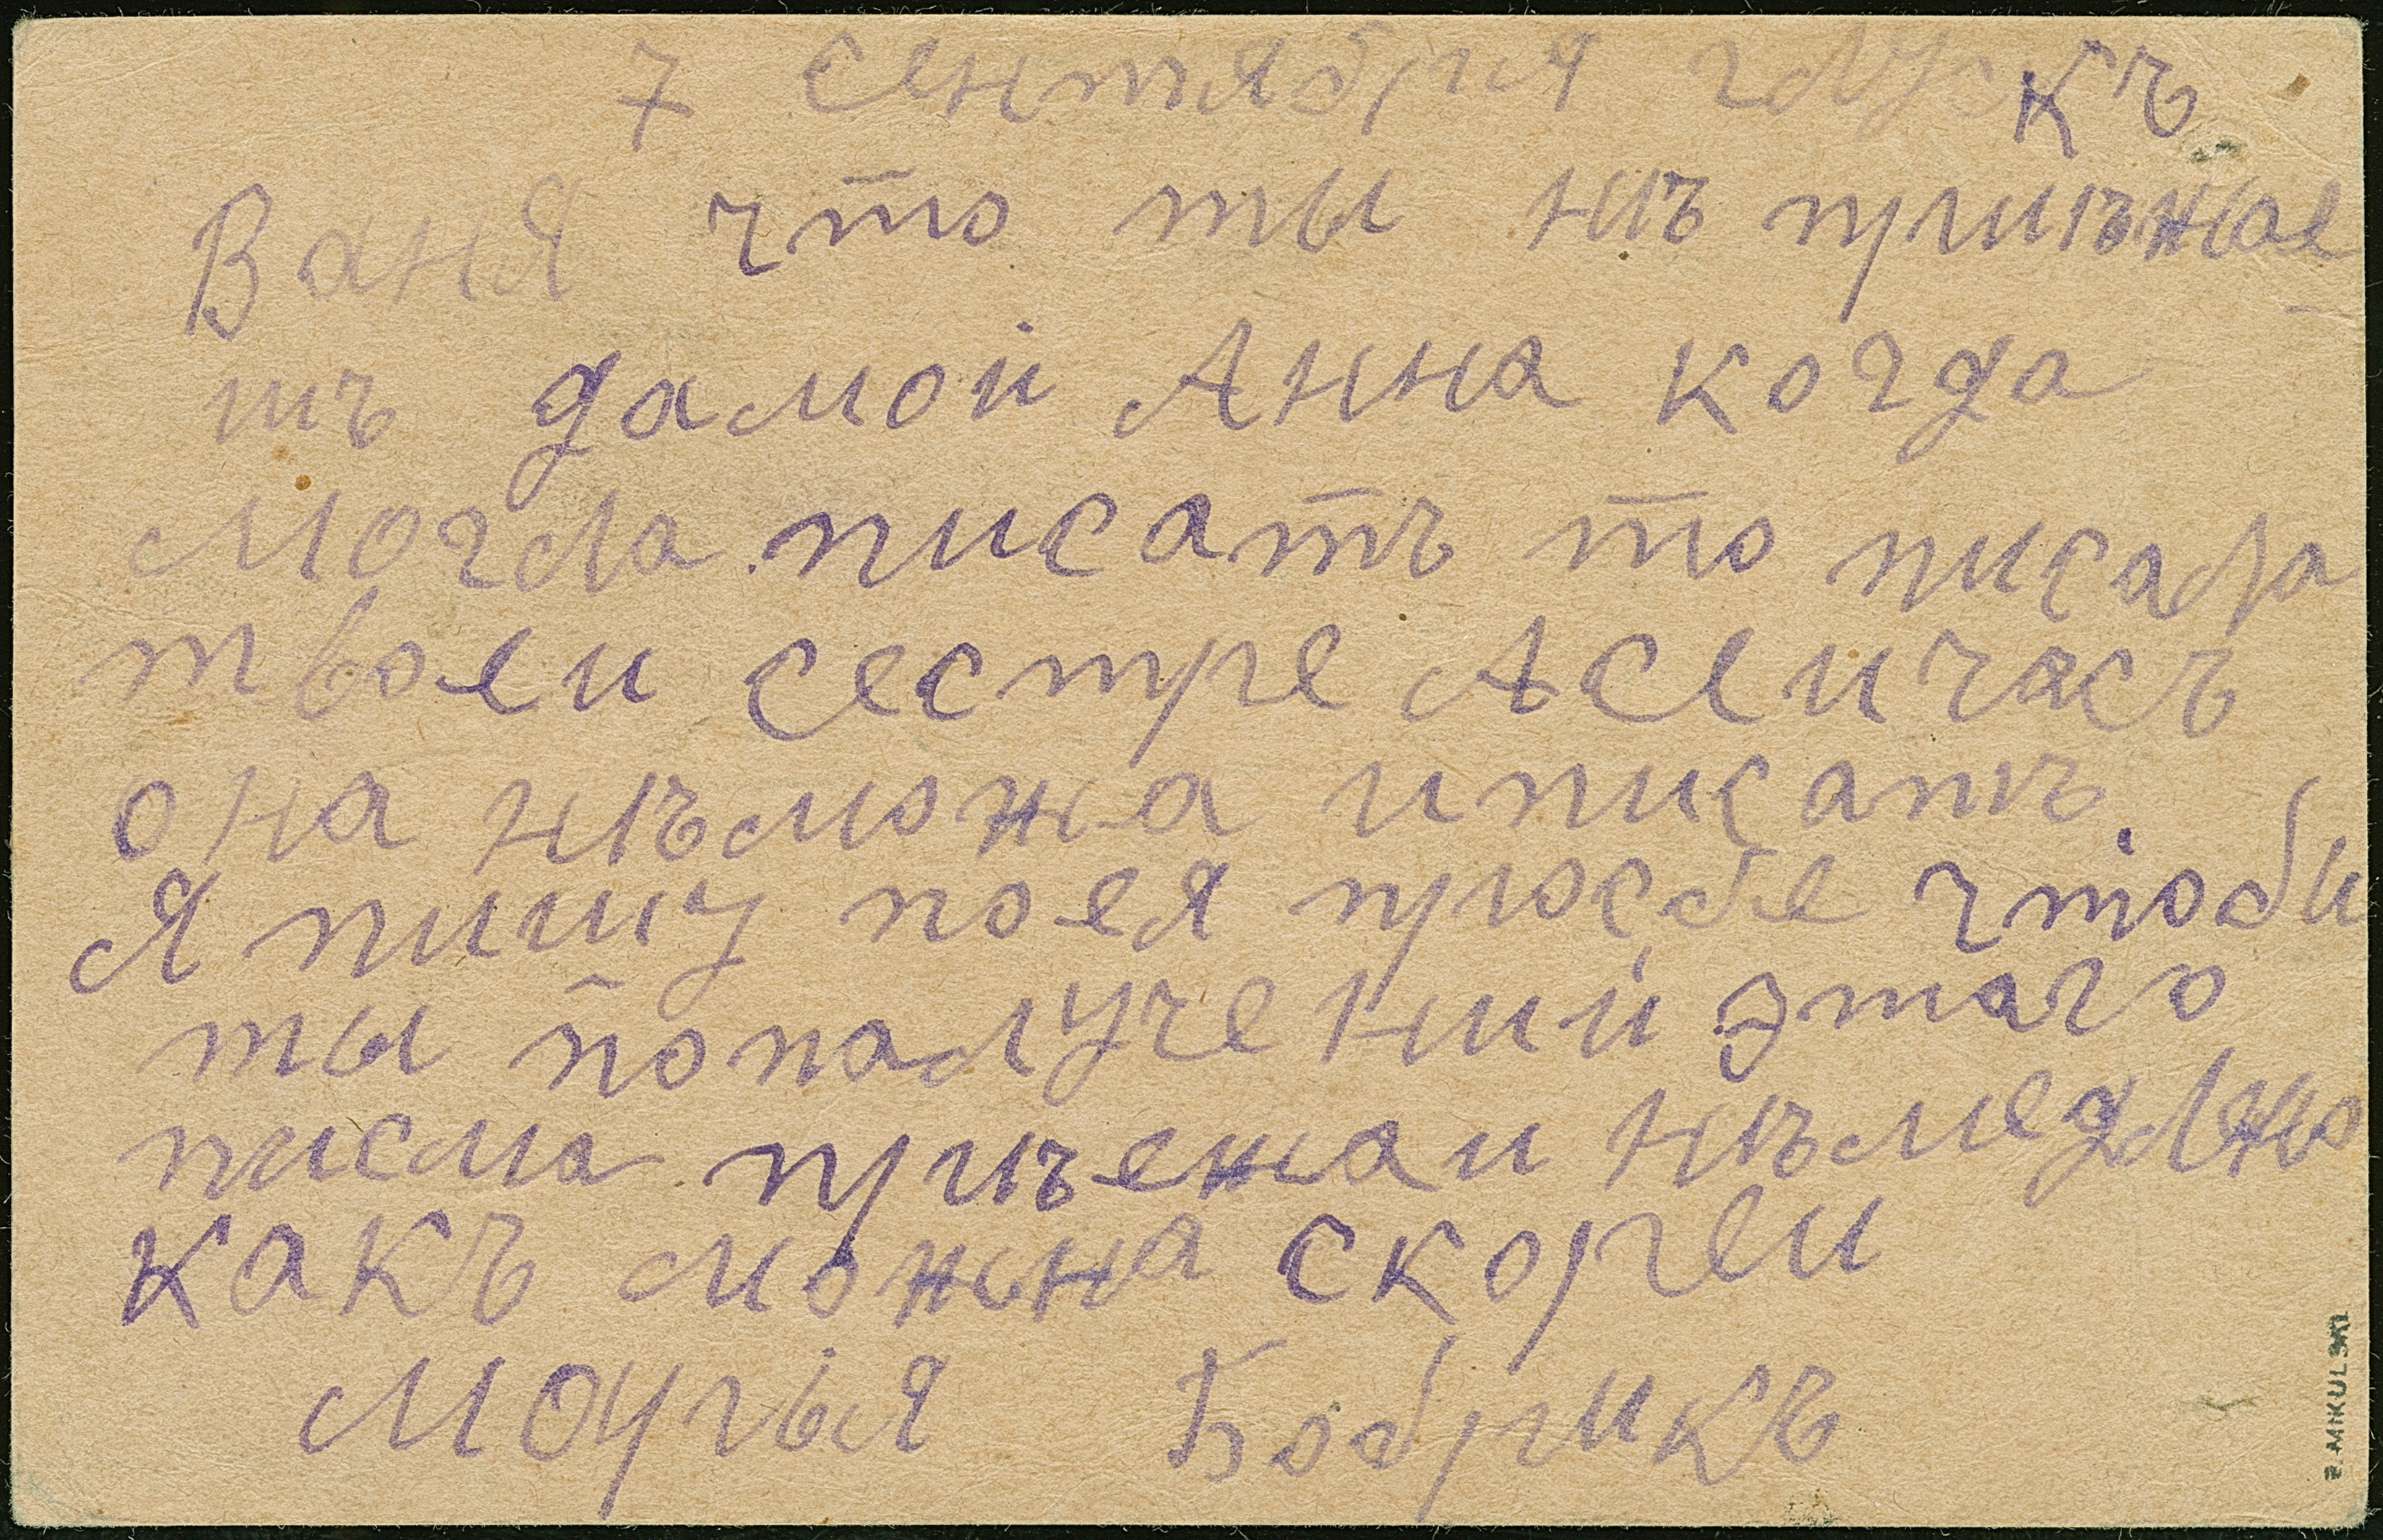 7 сентября
Ваня что ты нѣ приѣжае
тъ дамои Анна когда
могла писатъ то писала
твоеи сестре А сеичасъ
она нѣможа иписатъ
Я пишу поея просбе чтоби
ты пополучении этаго
писма приѣежаи нѣмедлено
какъ можна скореи
Моурья Бобрикъ
F. MIKULSKI